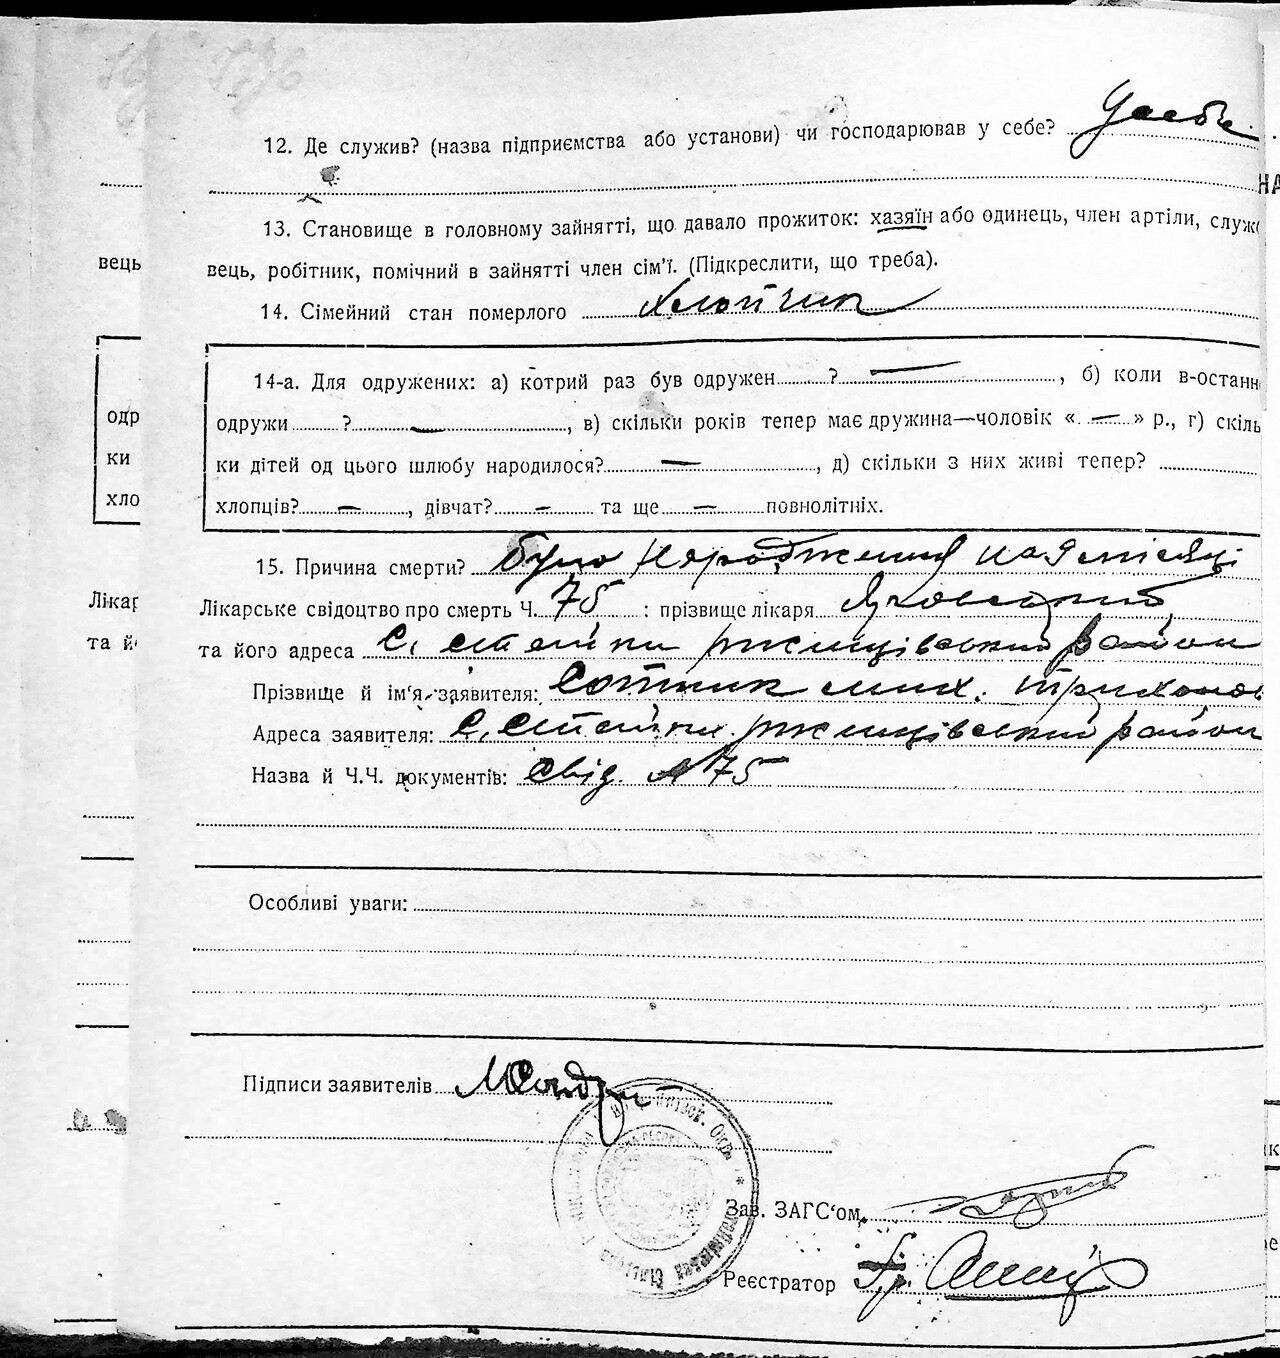 12. Де служив? (назва підприємства або установи) чи господарював у себе? У себе
НА
13. Становище в головному зайнятті, що давало прожиток: хазяїн або одинець, член артілі, служ
вець, робітник, помічний в зайнятті член сім'ї. (Підкреслити, що треба).
вець
14. Сімейний стан померлого Хлопчик
14-а. Для одружених: а) котрий раз був одружен ? — , б) коли в-останн
одружи ? — , в) скільки років тепер має дружина—чоловік « — » р., г) скіль
одр
ки дітей од цього шлюбу народилося? — , д) скільки з них живі тепер?
ки
хлопців? — , дівчат? — та ще — повнолітніх.
хло
15. Причина смерти? було народження на 7 місяці
Лікарське свідоцтво про смерть Ч. 75 : прізвище лікаря
Лікар
та його адреса С. Стайки Ржищівський район
та й
Прізвище й ім'я заявителя: Сотник Мих. Трихонов
Адреса заявителя: С. Стайки Ржищівський район
Назва й Ч.Ч. документів: Свід. № 75
Особливі уваги:
Підписи заявителів
Зав. ЗАГС'ом
Реєстратор